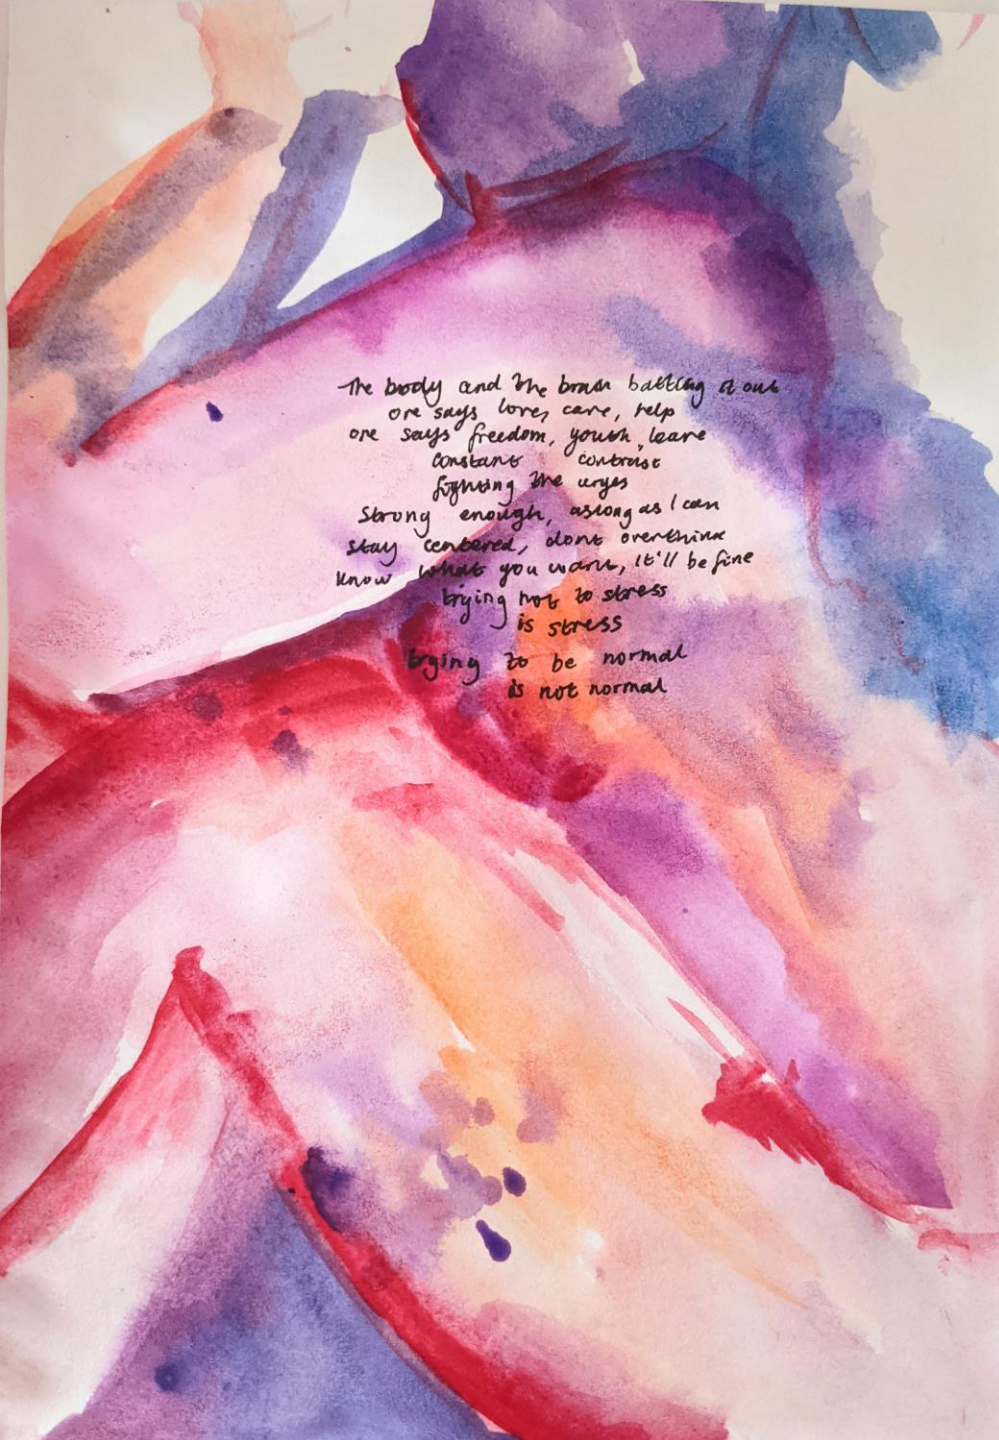 The body and the brain battling it out
one says love, care, help
one says freedom, youth, leave
constant contrast
fighting the urges
strong enough, aslong as I can
stay centered, dont overthink
know what you want, it'll be fine
trying not to stress
is stress
trying to be normal
is not normal